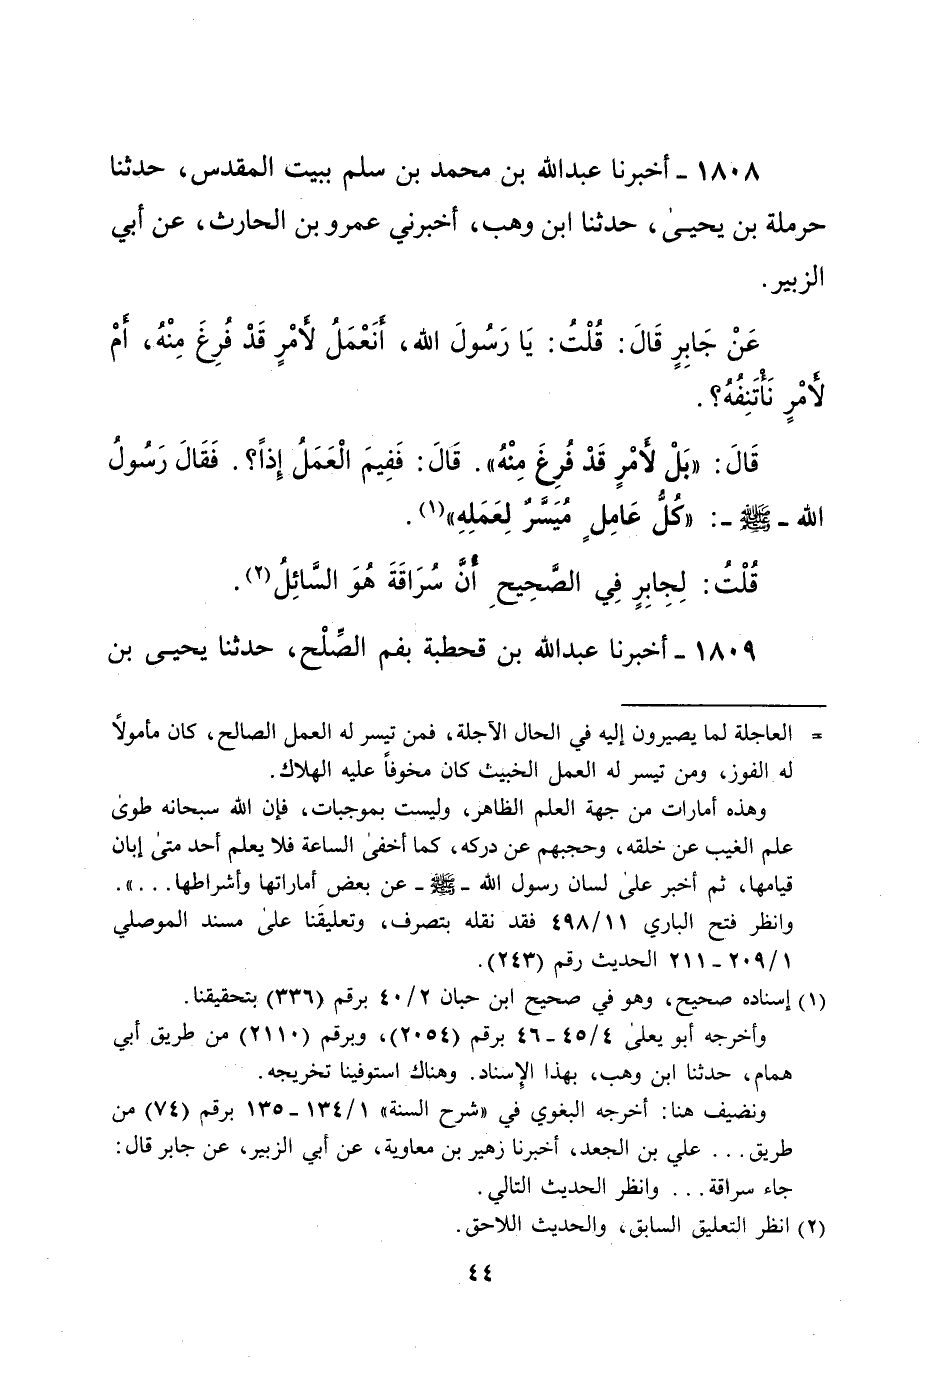 ١٨٠٨ ـ أخبرنا عبدالله بن محمد بن سلم ببيت المقدس، حدثنا
حرملة بن يحيىٰ، حدثنا ابن وهب، أخبرني عمرو بن الحارث، عن أبي
الزبير.
عَنْ جَابِرٍ قَالَ: قُلْتُ: يَا رَسُولَ الله، أَنَعْمَلُ لأَمْرٍ قَدْ فُرِغَ مِنْهُ، أَمْ
لأَمْرٍ نَأْتَنِفُهُ؟.
قَالَ: «بَلْ لأَمْرٍ قَدْ فُرِغَ مِنْهُ». قَالَ: فَفِيمَ الْعَمَلُ إِذاً؟. فَقَالَ رَسُولُ
الله ـ ﷺ ـ: «كُلُّ عَامِلٍ مُيَسَّرٌ لِعَمَلِهِ»(١).
قُلْتُ: لِجِابِرٍ فِي الصَّحِيحِ أَنَّ سُرَاقَةَ هُوَ السَّائِلُ(٢).
١٨٠٩ ـ أخبرنا عبدالله بن قحطبة بفم الصِّلْح، حدثنا يحيى بن
= العاجلة لما يصيرون إليه في الحال الآجلة، فمن تيسر له العمل الصالح، كان مأمولاً
له الفوز، ومن تيسر له العمل الخبيث كان مخوفاً عليه الهلاك.
وهذه أمارات من جهة العلم الظاهر، وليست بموجبات، فإن الله سبحانه طوىٰ
علم الغيب عن خلقه، وحجبهم عن دركه، كما أخفىٰ الساعة فلا يعلم أحد متىٰ إبان
قيامها، ثم أخبر علىٰ لسان رسول الله ـ ﷺ ـ عن بعض أماراتها وأشراطها...».
وانظر فتح الباري ٤٩٨/١١ فقد نقله بتصرف، وتعليقَنا علىٰ مسند الموصلي
٢٠٩/١ ـ ٢١١ الحديث رقم (٢٤٣).
(١) إسناده صحيح، وهو في صحيح ابن حبان ٤٠/٢ برقم (٣٣٦) بتحقيقنا.
وأخرجه أبو يعلىٰ ٤٥/٤ ـ ٤٦ برقم (٢٠٥٤)، وبرقم (٢١١٠) من طريق أبي
همام، حدثنا ابن وهب، بهذا الإسناد. وهناك استوفينا تخريجه.
ونضيف هنا: أخرجه البغوي في «شرح السنة» ١٣٤/١ ـ ١٣٥ برقم (٧٤) من
طريق... علي بن الجعد، أخبرنا زهير بن معاوية، عن أبي الزبير، عن جابر قال:
جاء سراقة... وانظر الحديث التالي.
(٢) انظر التعليق السابق، والحديث اللاحق.
٤٤